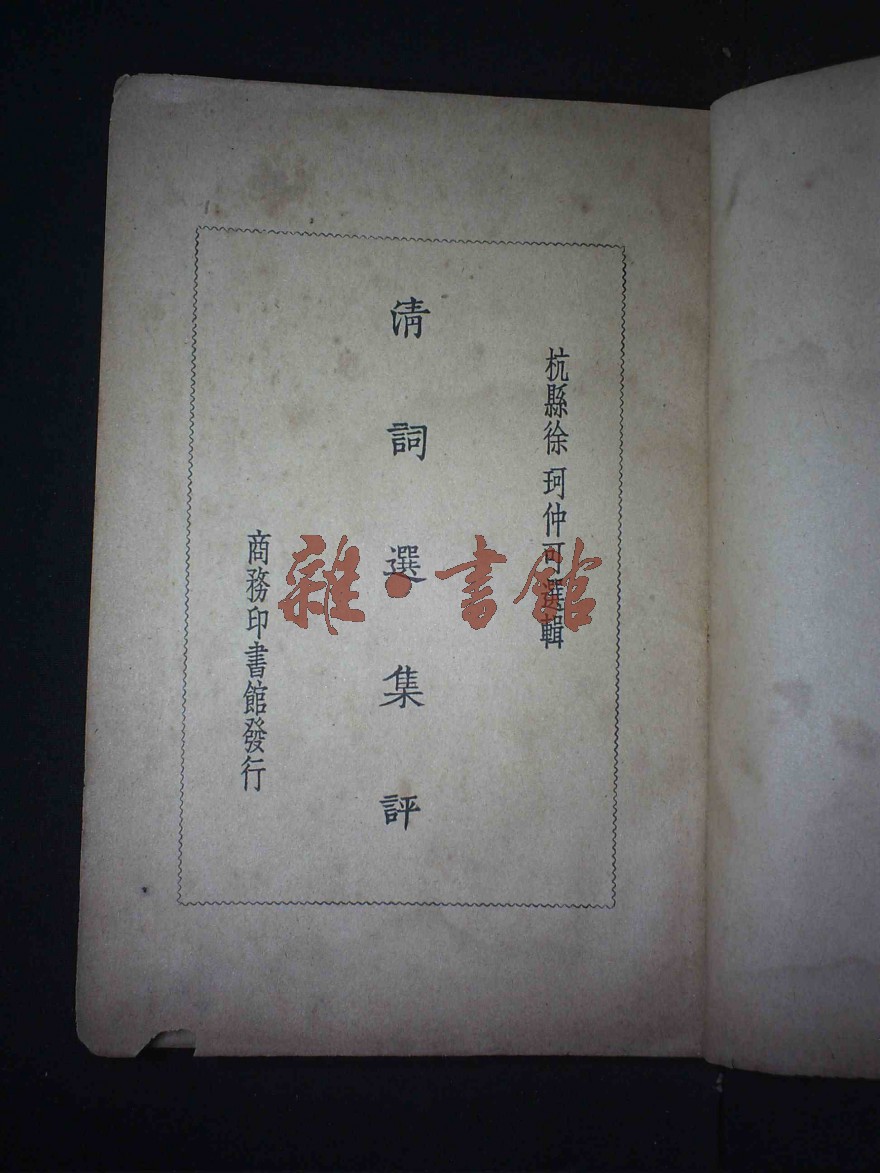 杭縣徐珂仲可選輯
清詞選集評
商務印書館發行
雜·書館